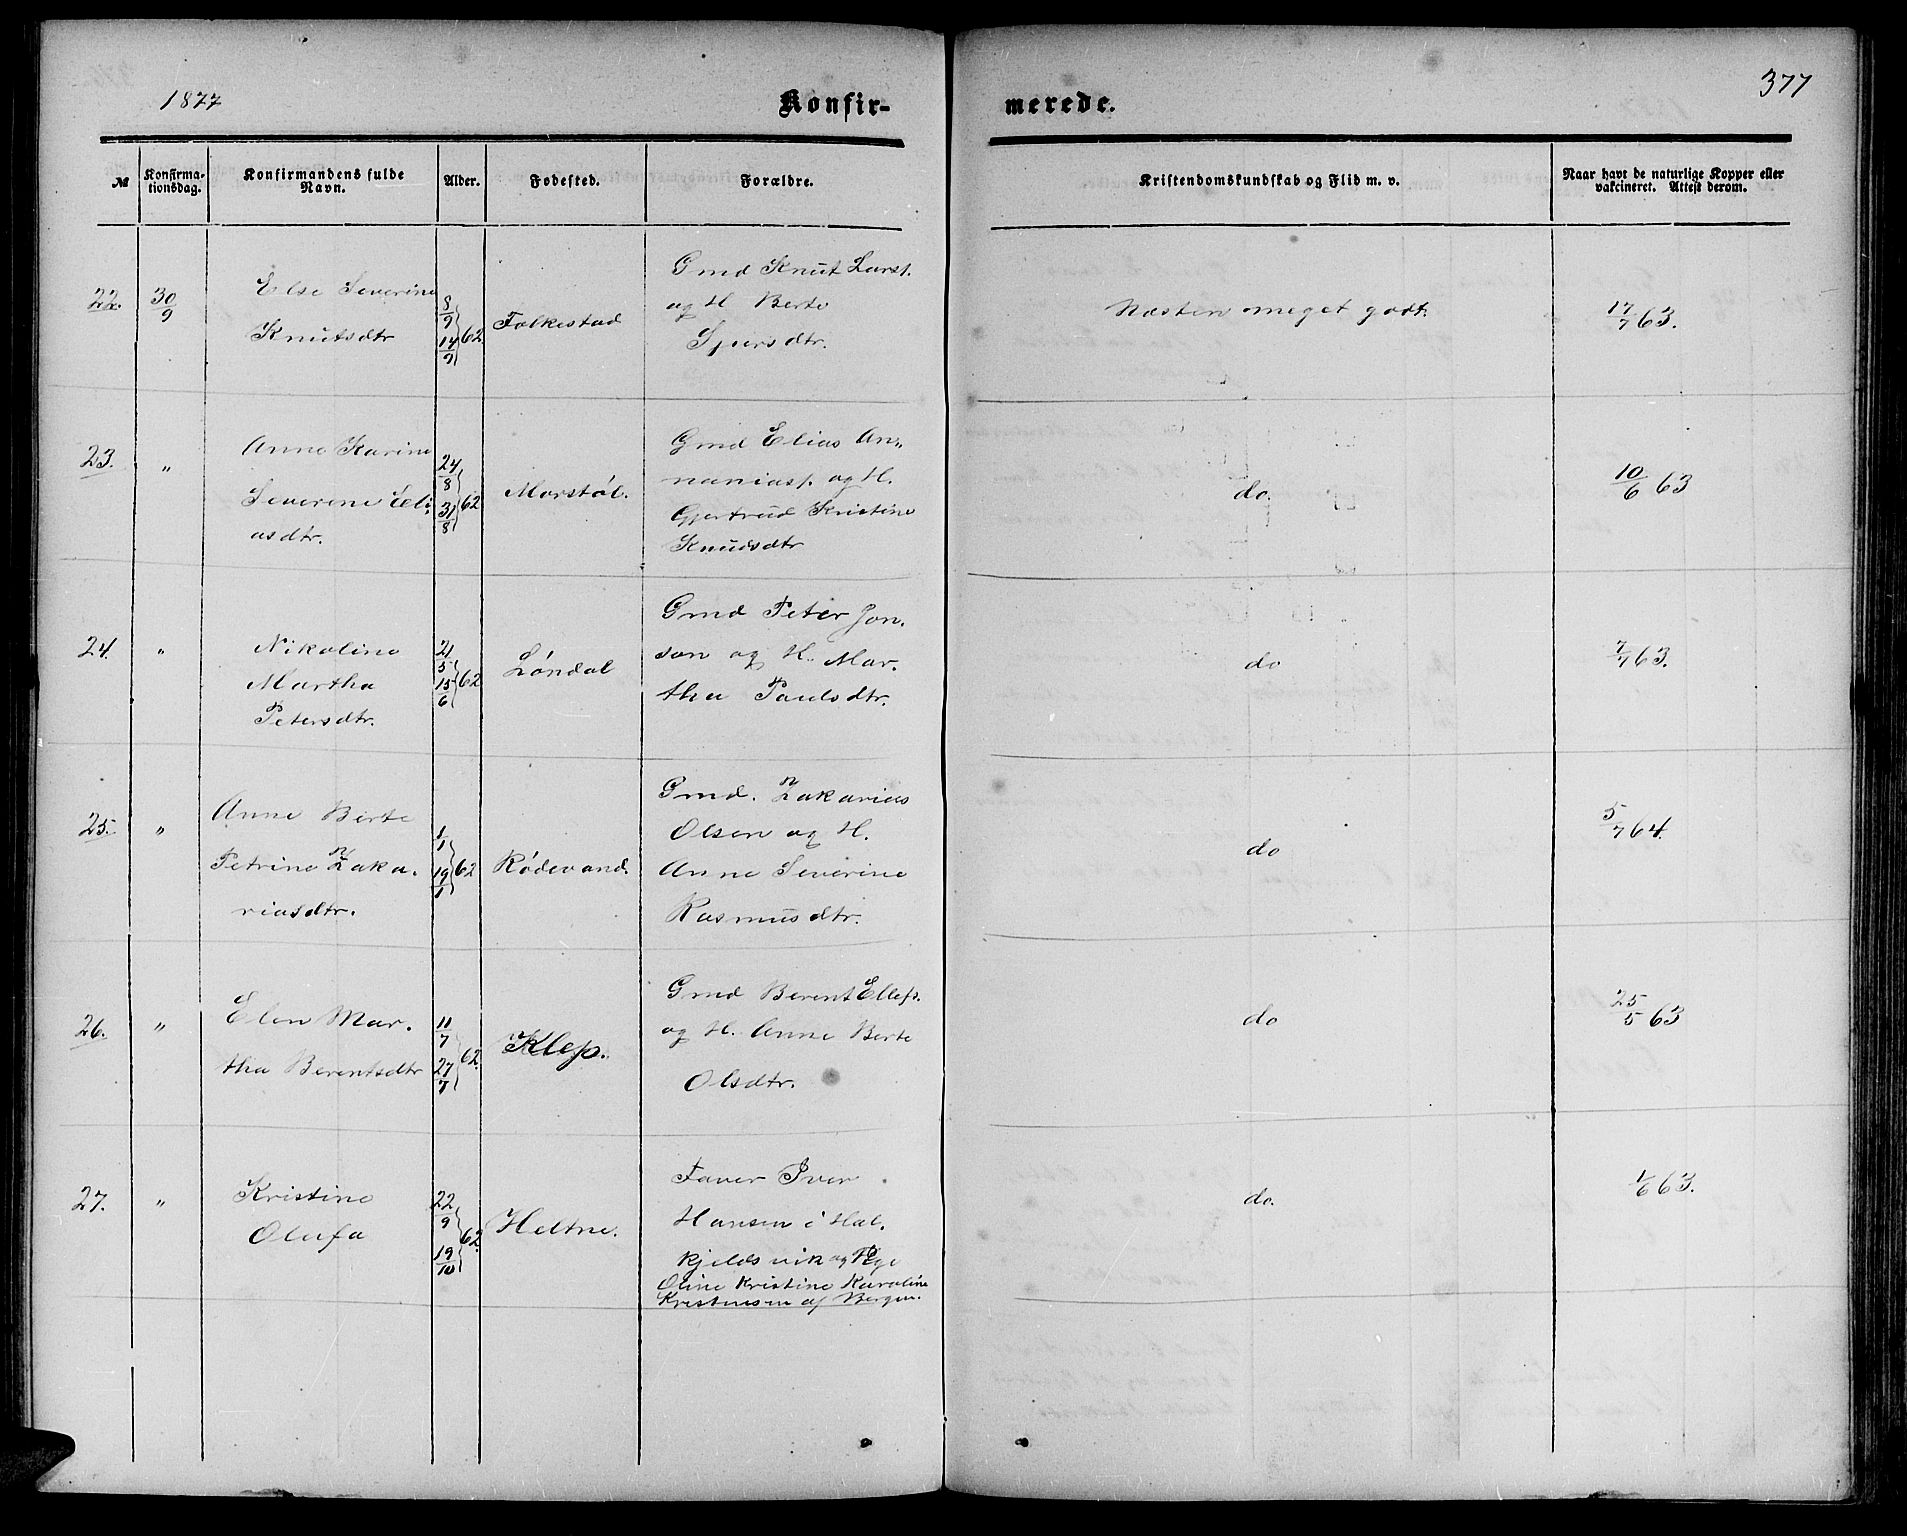 1877
Konfir-
merede.
377
№
Konfirma-
tionsdag.
Konfirmandens fulde
Navn.
Alder.
Fødested.
Forældre.
Kristendomskundskab og Flid m. v.
Naar havt de naturlige Kopper eller
vakcineret. Attest derom.
22. 30/9
Else Severine
Knutsdtr
8/9 14/9 62
Folkestad
Gmd Knut Larss.
og H Berte
Sjursdtr.
Næsten meget godt.
17/7 63.
23. "
Anne Karine
Severine Eli-
asdtr.
24/8 31/8 62
Morstøl.
Gmd Elias An„
naniass. og H.
Gjertrud Kristine
Knudsdtr
do.
10/6 63
24. "
Nikoline
Martha
Petersdtr.
21/5 15/6 62
Løndal
Gmd Peter Jon.
son og H. Mar.
tha Paulsdtr.
do
7/7 63.
25. "
Anne Berte
Petrine Zaka.
riasdtr.
1/1 19/1 62
Rødevand.
Gmd. Zakarias
Olsen og H.
Anne Severine
Rasmusdtr.
do
5/7 64.
26. "
Elen Mar.
tha Berentsdtr
11/7 27/7 62.
Klep.
Gmd Berent Ellefs.
og H. Anne Berte
Olsdtr.
do
25/5 63
27. "
Kristine
Olufa
22/9 19/10 62.
Heltne.
Faver Iver
Hansen i Hal.
kjeldsvik og Pge
Oline Kristine Karoline
Kristensen af Bergen.
do.
1/6 63.